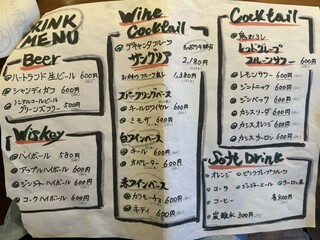 DRINK
MENU
Beer
ハートランド生ビール 600円
シャンディガフ 600円
ノンアルコールビール
グリーンズフリー 500円
Wiskey
ハイボール 580円
アップルハイボール 600円
ジンジャーハイボール 600円
コークハイボール 600円
Wine
Cocktail
サングリア 2,180円
1,380円
スパークリングベース
キールロワイヤル 600円
ミモザ 600円
白ワインベース
キール 600円
オペレーター 600円
赤ワインベース
カリモーチョ 600円
キティ 600円
Cocktail
レッドグレープ
フルーツサワー 600円
レモンサワー 600円
ジントニック 600円
ジンバック 600円
カシスソーダ 600円
カシスオレンジ 600円
カシスウーロン 600円
Soft Drink
オレンジ ピンクグレープフルーツ
コーラ ジンジャーエール ウーロン茶
コーヒー 各300円
炭酸水 300円